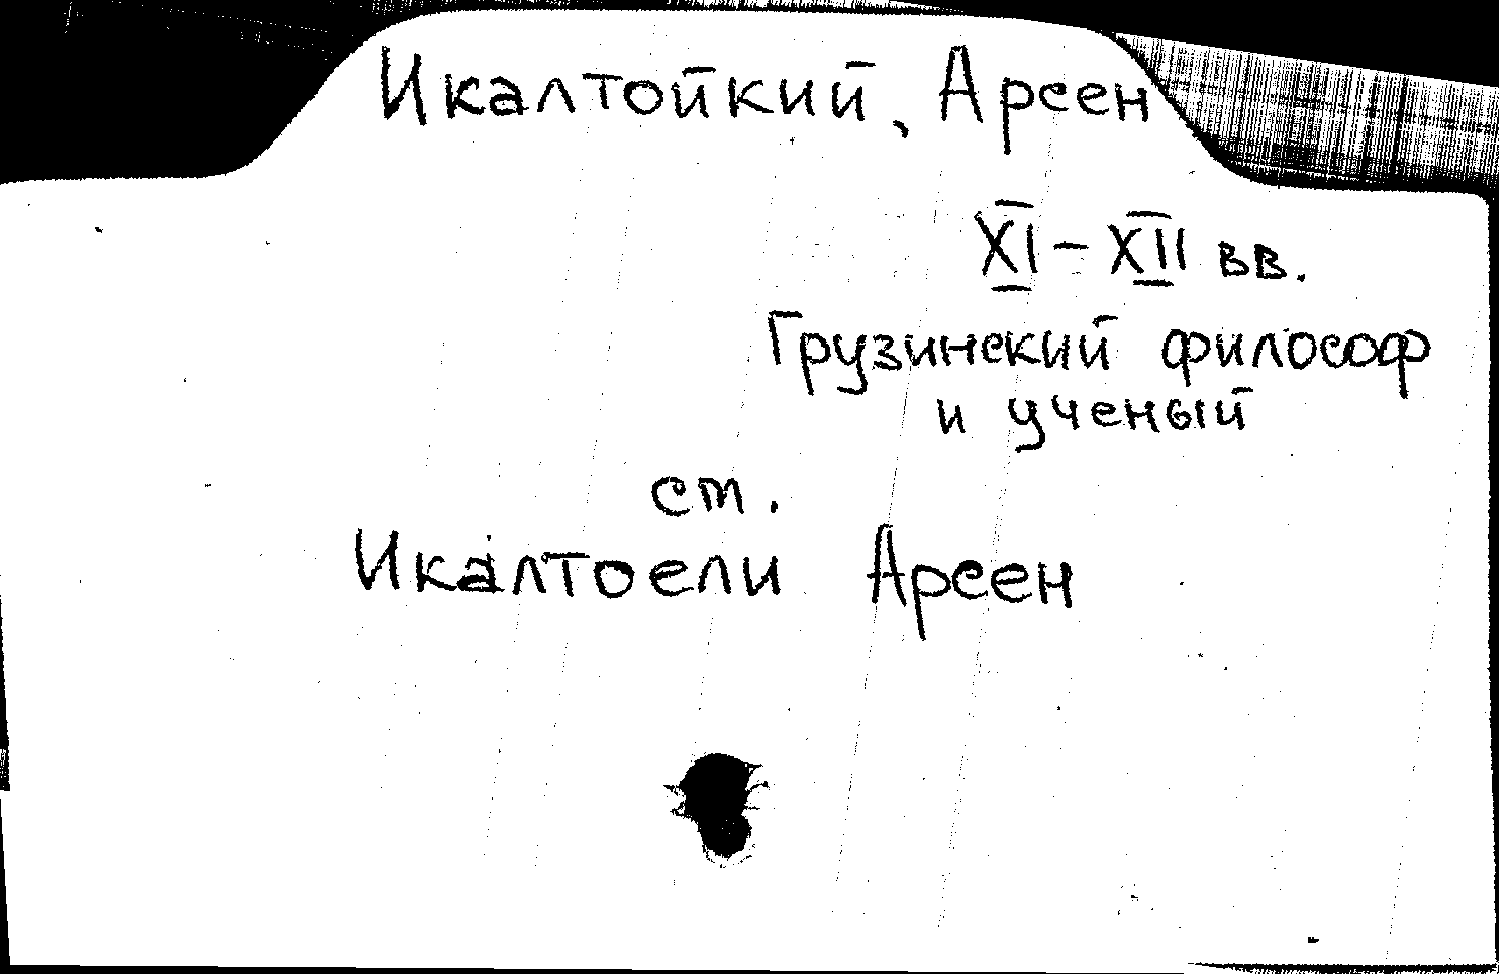 Икалтойкий, Арсен
XI – XII вв.
Грузинский философ
и ученый
ст.
Икалтоели Арсен